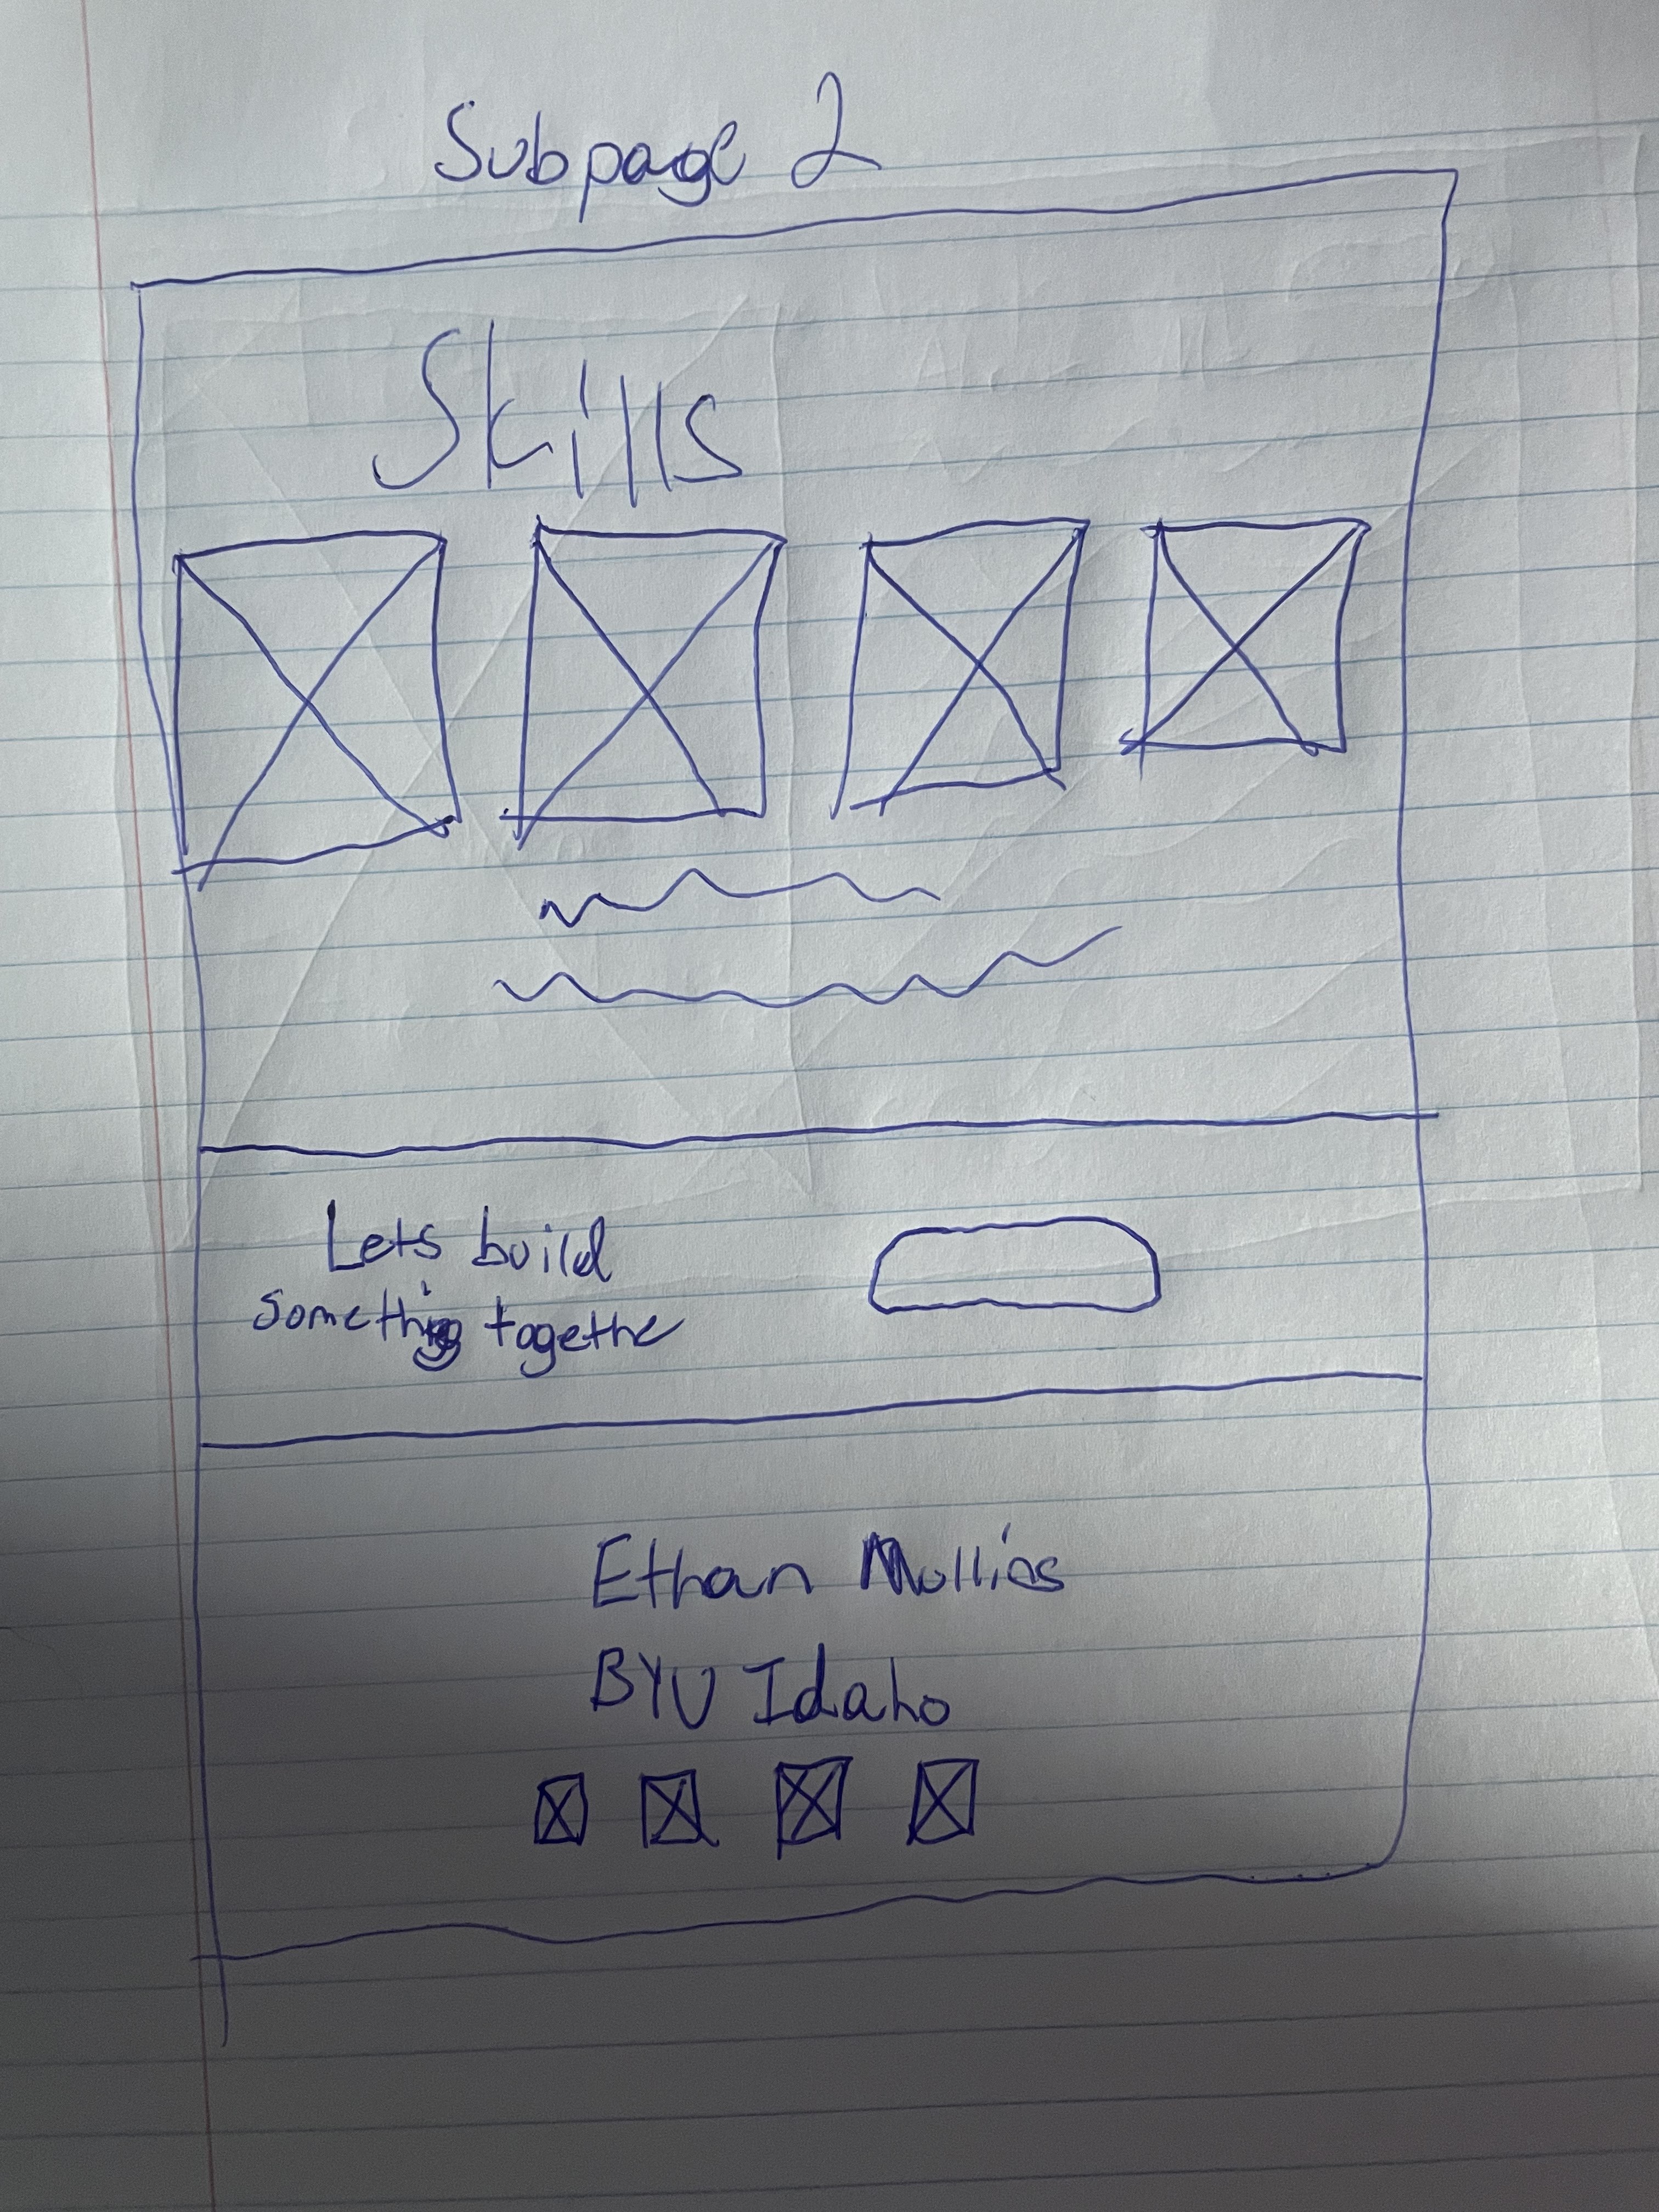 Subpage 2
Skills
Lets build
something togethe
Ethan Mullins
BYU Idaho